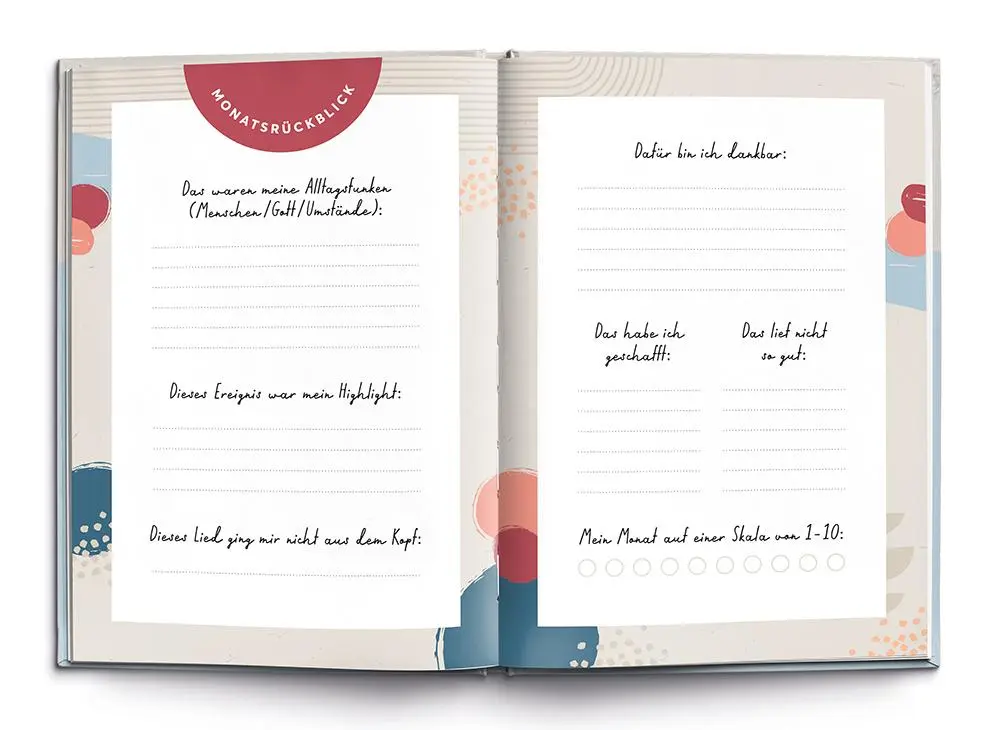 MONATSRÜCKBLICK
Das waren meine Alltagsfunken
(Menschen/Gott/Umstände):
Dieses Ereignis war mein Highlight:
Dieses Lied ging mir nicht aus dem Kopf:
Dafür bin ich dankbar:
Das habe ich
geschafft:
Das lief nicht
so gut:
Mein Monat auf einer Skala von 1-10: